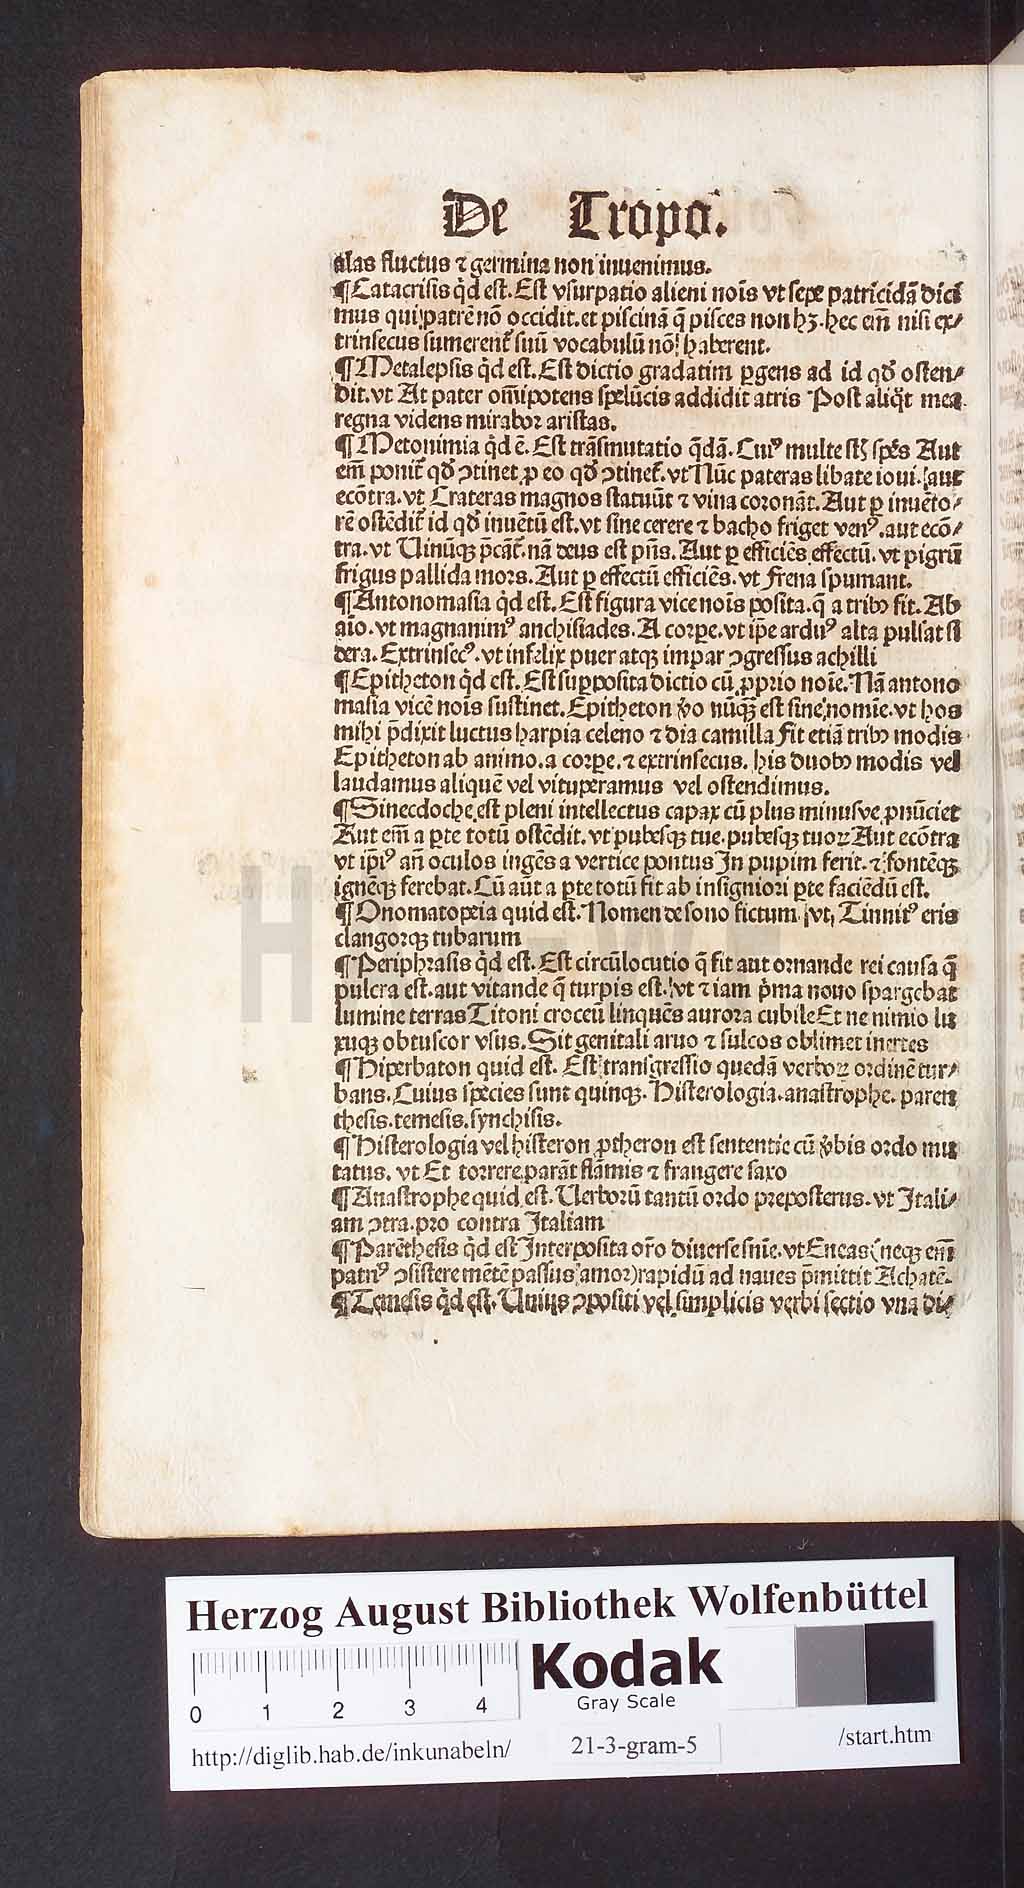 De Tropo.
alas fluctus ⁊ germina non inuenimus.
¶Catacrisis qd̓ est. Est vsurpatio alieni nois̄ vt sepe patricidā dici
mus qui patrē nō occidit. et piscinā q̄ pisces non hꝫ. hec em̄ nisi ex⸗
trinsecus sumerent᷑ suū vocabulū nō haberent.
¶Metalepsis qd̓ est. Est dictio gradatim ꝑgens ad id qd̓ osten⸗
dit. vt At pater om̄ipotens spelūcis addidit atris Post aliq̄t mea
regna videns mirabor aristas.
¶Metonimia qd̓ ē. Est trāsmutatio q̄dā. Cuiꝰ multe st̄ sp̄es Aut
em̄ ponit᷑ qd̓ ꝯtinet ꝓ eo qd̓ ꝯtinet᷑. vt Nūc pateras libate ioui. aut
ecōtra. vt Crateras magnos statuūt ⁊ vina coronāt. Aut ꝑ inuēto⸗
rē ostēdit᷑ id qd̓ inuētū est. vt sine cerere ⁊ bacho friget venꝰ. aut ecō⸗
tra. vt Uinūqꝫ p̄cāt᷑. nā deus est pn̄s. Aut ꝑ efficiēs effectū. vt pigrū
frigus pallida mors. Aut ꝑ effectū efficiēs. vt Frena spumant.
¶Antonomasia qd̓ est. Est figura vice nois̄ posita. q̄ a tribꝰ fit. Ab
aīo. vt magnanimꝰ anchisiades. A corpe. vt ip̄e arduꝰ alta pulsat si
dera. Extrinsecꝰ. vt infelix puer atqꝫ impar ꝯgressus achilli
¶Epitheton qd̓ est. Est suꝑposita dictio cū ꝓprio noīe. Nā antono
masia vicē nois̄ sustinet. Epitheton v̓o nūqꝫ est sine nomīe. vt hos
mihi p̄dixit luctus harpia celeno ⁊ dia camilla Fit etiā tribꝰ modis
Epitheton ab animo. a corpe. ⁊ extrinsecus. his duobꝰ modis vel
laudamus aliquē vel vituperamus vel ostendimus.
¶Sinecdoche est pleni intellectus capax cū plus minusve ꝓnūciet
Aut em̄ a ꝑte totū ostēdit. vt pubesqꝫ tue. pubesqꝫ tuoꝝ Aut ecōtra
vt ip̄iꝰ an̄ oculos ingēs a vertice pontus In pupim ferit. ⁊ fontēqꝫ
ignēqꝫ ferebat. Cū aūt a ꝑte totū fit ab insigniori ꝑte faciēdū est.
¶Onomatopeia quid est. Nomen de sono fictum vt Tinnitꝰ eris
clangorqꝫ tubarum
¶Periphrasis qd̓ est. Est circūlocutio q̄ fit aut ornande rei causa q̄
pulcra est. aut vitande q̄ turpis est. vt ⁊ iam p̓ma nouo spargebat
lumine terras Titoni croceū linquēs aurora cubile Et ne nimio lu
xuqꝫ obtusior vsus. Sit genitali aruo ⁊ sulcos oblimet inertes
¶Hiperbaton quid est. Est transgressio quedā verboꝝ ordinē tur⸗
bans. Cuius species sunt quinqꝫ. Histerologia. anastrophe. paren
thesis. temesis. synchisis.
¶Histerologia vel histeron ꝓtheron est sententie cū v̓bis ordo mu
tatus. vt Et torrere parāt flāmis ⁊ frangere saxo
¶Anastrophe quid est. Uerborū tantū ordo preposterus. vt Itali⸗
am ꝯtra. pro contra Italiam
¶Parēthesis qd̓ est Interposita or̄o diuerse sn̄ie. vt Eneas (neqꝫ em̄
patriꝰ ꝯsistere mētē passus amor) rapidū ad naues p̄mittit Achatē.
¶Temesis qd̓ est. Uniꝰ ꝯpositi vel simplicis verbi sectio vna di⸗
Herzog August Bibliothek Wolfenbüttel
0 1 2 3 4
Kodak
Gray Scale
http://diglib.hab.de/inkunabeln/
21-3-gram-5
/start.htm